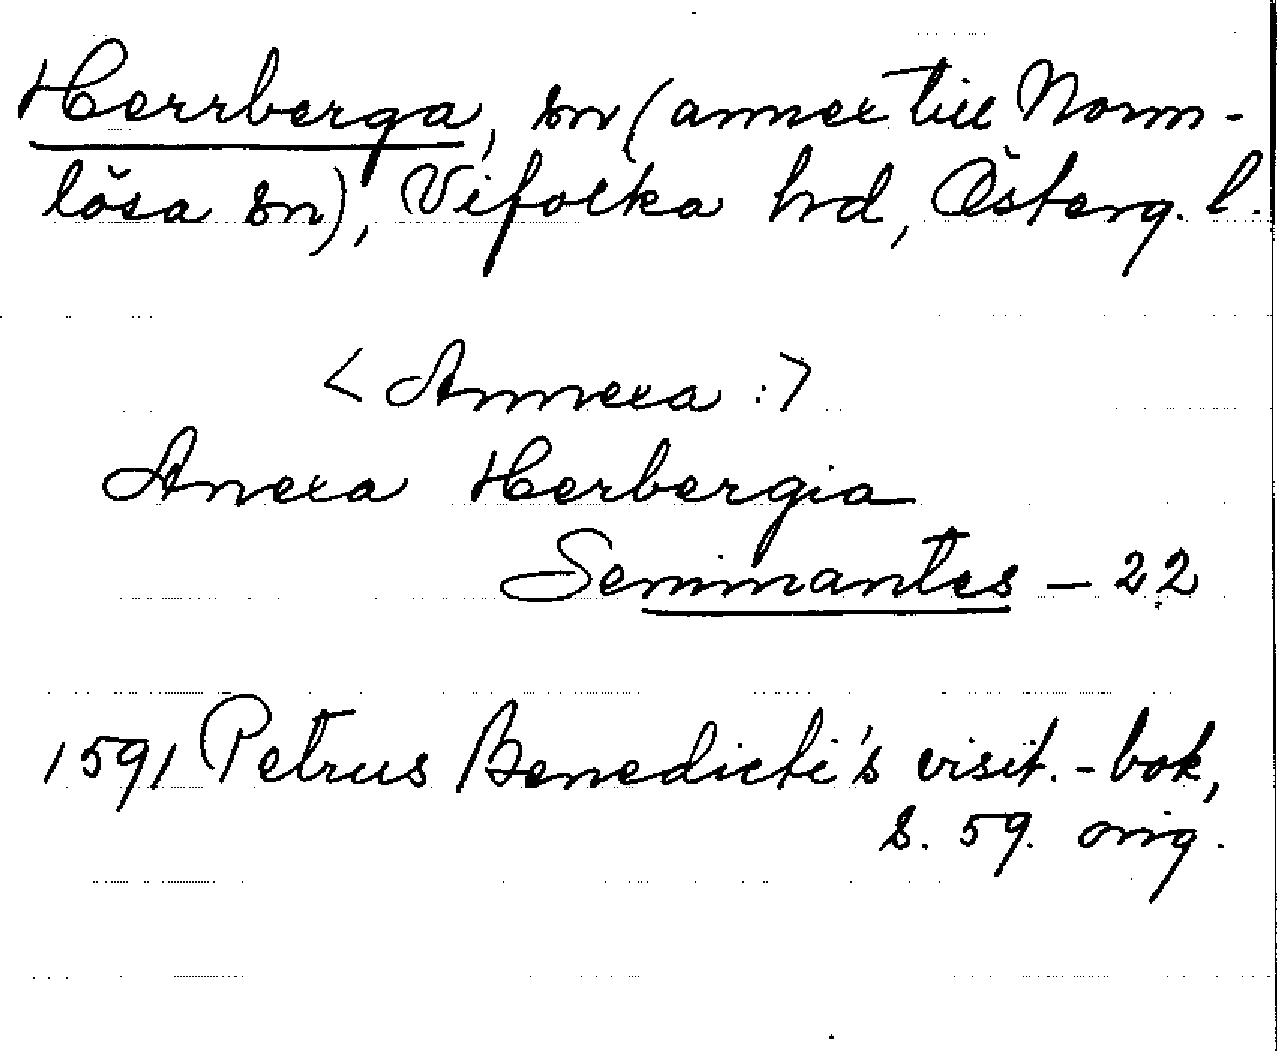 Herrberga, sn (annex till Norm-
lösa sn), Vifolka hd, Österg. l.
< Annexa :>
Anexa Herbergia
Seminantes – 22
1591 Petrus Benedicti's visit.-bok,
s. 59. orig.